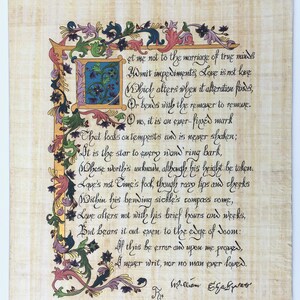 et me not to the marriage of true minds
Admit impediments, Love is not love
Which alters when it alteration finds,
Or bends with the remover to remove.
O no, it is an ever-fixed mark
That looks on tempests and is never shaken;
It is the star to every wand'ring bark,
Whose worth's unknown, although his height be taken.
Love's not Time's fool, though rosy lips and cheeks
Within his bending sickle's compass come,
Love alters not with his brief hours and weeks,
But bears it out even to the edge of doom:
If this be error and upon me proved,
I never writ, nor no man ever loved.
William